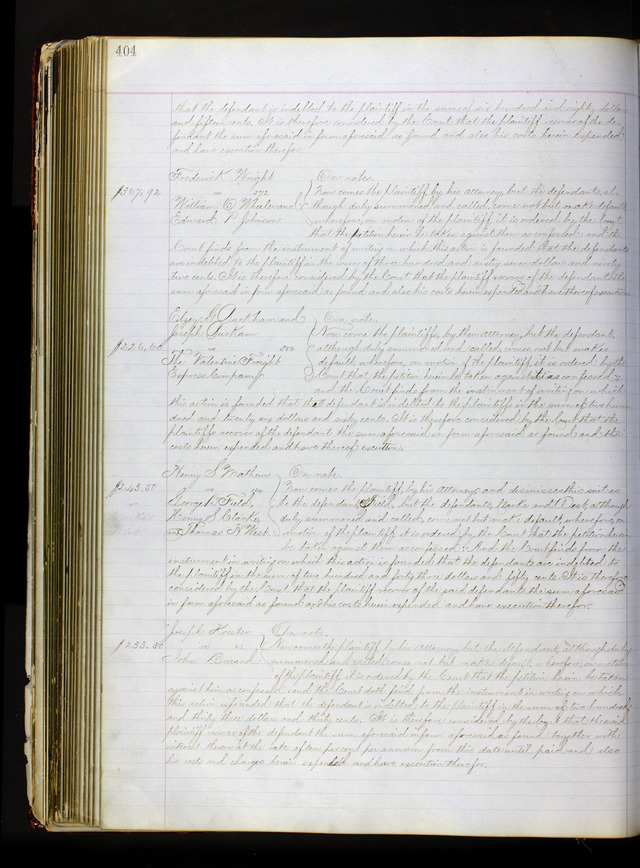 404
that the defendant is indebted to the plaintiff in the sum of six hundred and eighty dollars
and fifteen cents. It is therefore considered by the Court that the plaintiff recover of the de-
fendant the sum aforesaid in form aforesaid as found, and also his costs herein expended
and have execution therefor.
Frederick Wright On notes.
$367.92 vs 272 Now comes the plaintiff by his attorney, but the defendants, al-
William O. though duly summoned and called, come not but make default
Edward P. Johnson wherefore, on motion of the plaintiff it is ordered by the Court
that the petition herein be taken against them as confessed; and the
Court finds from the instrument of writing on which this action is founded that the defendants
are indebted to the plaintiff in the sum of three hundred and sixty seven dollars and ninety
two cents. It is therefore considered by the Court that the plaintiff recover of the defendants the
sum aforesaid in form aforesaid as found and also his costs herein expended and have therefor execution
and On note.
Joseph Now come the plaintiffs by their attorney, but the defendant,
$226.60 vs although duly summoned and called, comes not but makes
The Valentine Freight default wherefore, on motion of the plaintiff, it is ordered by the
Express Company Court that the petition herein be taken against it as confessed;
and the Court finds from the instrument of writing on which
this action is founded that the defendant is indebted to the plaintiffs in the sum of two hun-
dred and twenty six dollars and sixty cents. It is therefore considered by the Court that the
plaintiffs recover of the defendant the sum aforesaid in form aforesaid as found and their
costs herein expended and have thereof execution.
Henry S. Mathews On note.
$243.50 vs Now comes the plaintiff by his attorney and dismisses this suit as
George W. Field, to the defendant Field, but the defendants, Clarke and West, although
Henry S. Clarke, duly summoned and called, come not but make default wherefore, on
and Thomas H. West motion of the plaintiff it is ordered by the Court that the petition herein
be taken against them as confessed. And the Court finds from the
instrument in writing on which this action is founded that the defendants are indebted to
the plaintiff in the sum of two hundred and forty three dollars and fifty cents. It is therefore
considered by the Court that the plaintiff recover of the said defendants the sum aforesaid
in form aforesaid as found and his costs herein expended and have execution therefor.
Joseph On note.
$233.30 vs Now comes the plaintiff by his attorney, but the defendant, although duly
John Durand summoned and called, comes not but makes default wherefore, on motion
of the plaintiff it is ordered by the Court that the petition herein be taken
against him as confessed; and the Court doth find from the instrument in writing on which
this action is founded that the defendant is indebted to the plaintiff in the sum of two hundred
and thirty three dollars and thirty cents. It is therefore considered by the Court that the said
plaintiff recover of the defendant the sum aforesaid in form aforesaid as found together with
interest thereon at the rate of ten per cent per annum from this date until paid and also
his costs and charges herein expended and have execution therefor.